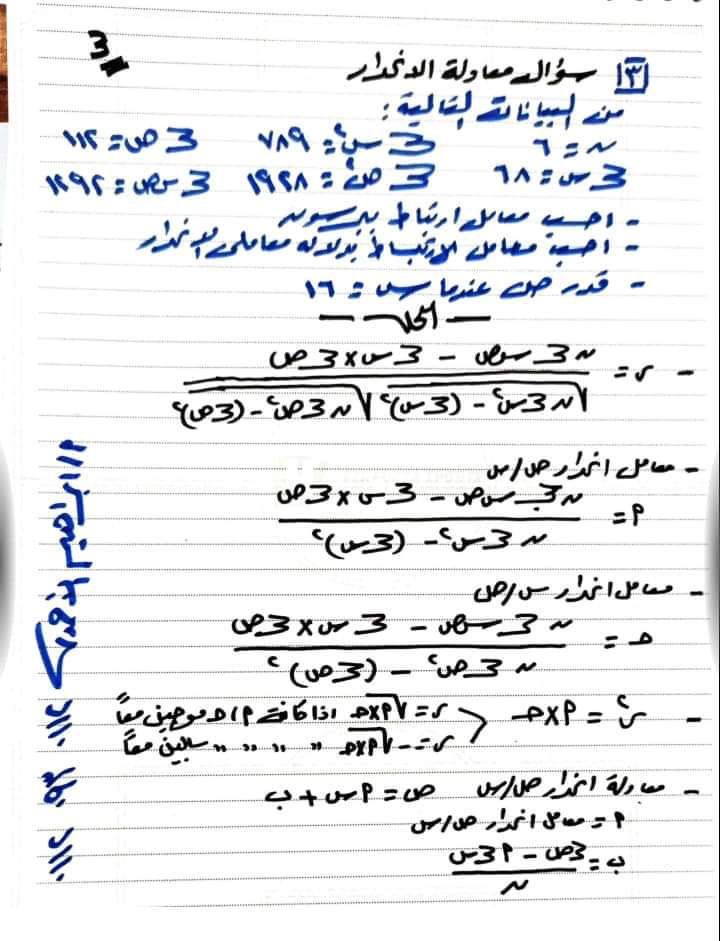 ٣
[٣] سؤال معادلة الانحدار
من البيانات التالية :
ن = ٦ مجـ س² = ٧٨٩ مجـ ص = ١١٢
مجـ س = ٦٨ مجـ ص² = ١٩٢٨ مجـ س ص = ١٢٩٢
- احسب معامل ارتباط بيرسون
- احسب معامل الارتباط بدلالة معاملي الانحدار
- قدر ص عندما س = ١٦
— الحل —
- ر = (ن مجـ س ص - مجـ س × مجـ ص) / (√(ن مجـ س² - (مجـ س)²) √(ن مجـ ص² - (مجـ ص)²))
- معامل انحدار ص/س
م = (ن مجـ س ص - مجـ س × مجـ ص) / (ن مجـ س² - (مجـ س)²)
- معامل انحدار س/ص
حـ = (ن مجـ س ص - مجـ س × مجـ ص) / (ن مجـ ص² - (مجـ ص)²)
- ر² = م × حـ > ر = √(م × حـ) اذا كانت م ، حـ موجبين معاً
ر = -√(م × حـ) " " " " سالبين معاً
- معادلة انحدار ص/س ص = م س + ب
م = معامل انحدار ص/س
ب = (مجـ ص - م مجـ س) / ن
م / ابراهيم